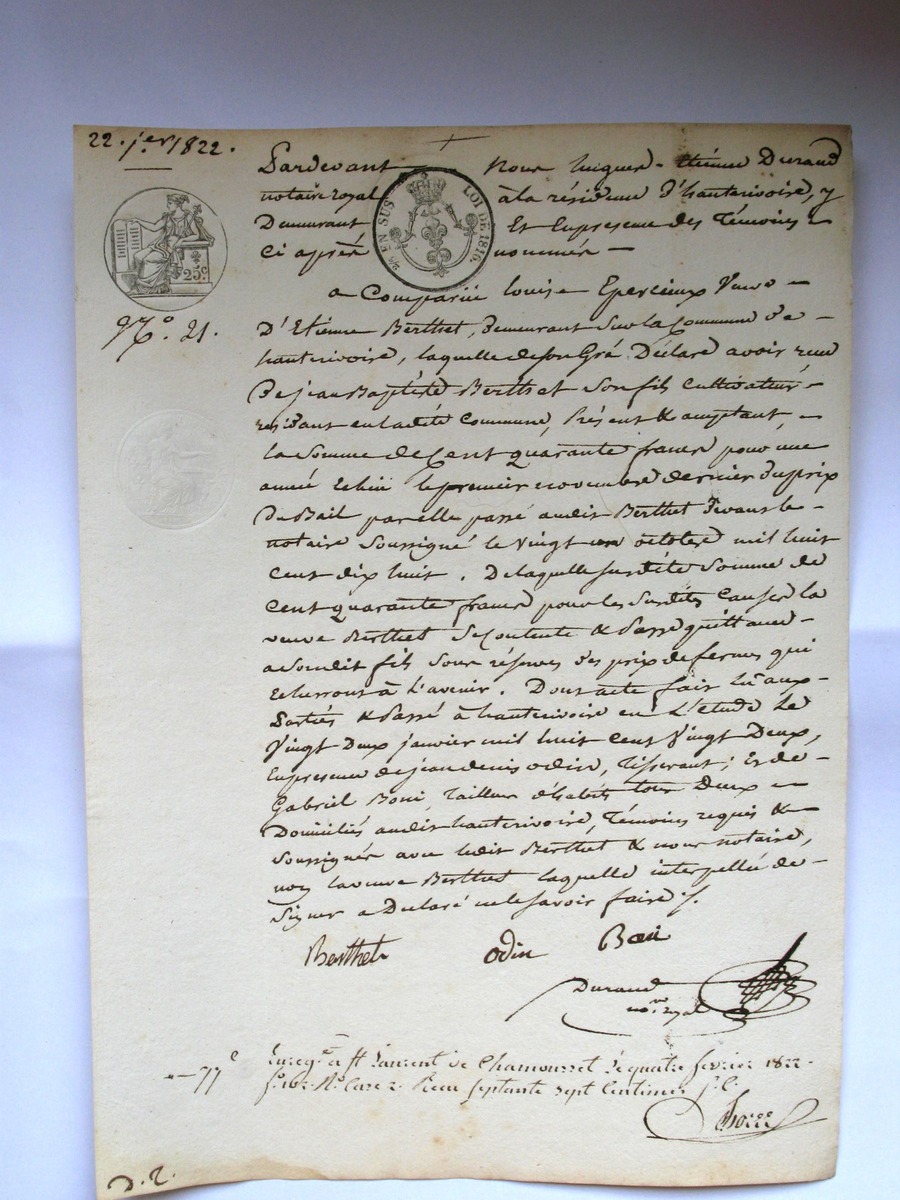 22. j.er 1822.
Pardevant Nous Étienne Durand
notaire royal à la résidence d'hauterivoire, y
Demeurant Et En presence des Témoins
Ci après nommés
EN SUS LOI DE 1816.
25c
N.o 21.
a Comparüe louise Epercieux Veuve
D'Etienne Berthet, demeurant Sur la Commune de
hauterivoire, laquelle de son Gré Déclare avoir reçu
De jean Baptiste Berthet Son fils Cultivateur
residant en ladite Commune, Présent & acceptant,
la Somme de Cent quarante francs pour une
année Echüe le premier novembre dernier du prix
Du Bail par elle passé audit Berthet devant le
notaire Soussigné le Vingt un octobre mil huit
Cent dix huit. De laquelle susdite Somme de
Cent quarante francs pour les Susdites Causes la
veuve Berthet Se Contente & Passe quittance
a Son dit fils Sous réserves des prix de fermes qui
Echerront à l'avenir. Dont acte fait lu aux
Parties & Passé à hauterivoire en L'étude Le
Vingt Deux janvier mil huit Cent Vingt Deux,
En presence de jean denis odin, Tisserant; Et de
Gabriel Boni, Tailleur d'habits tous Deux
Domiciliés audit hauterivoire, Témoins requis &
Soussignés avec ledit Berthet & nous notaire,
non la veuve Berthet laquelle interpellée de
Signer a Déclaré ne le Savoir faire /.
Berthet odin Boni
Durand
no.re royal
77c Enreg.é à St Laurent de Chamousset le quatre fevrier 1822
f.o N.o Case 2. Reçu Septante sept Centimes
D. 2.